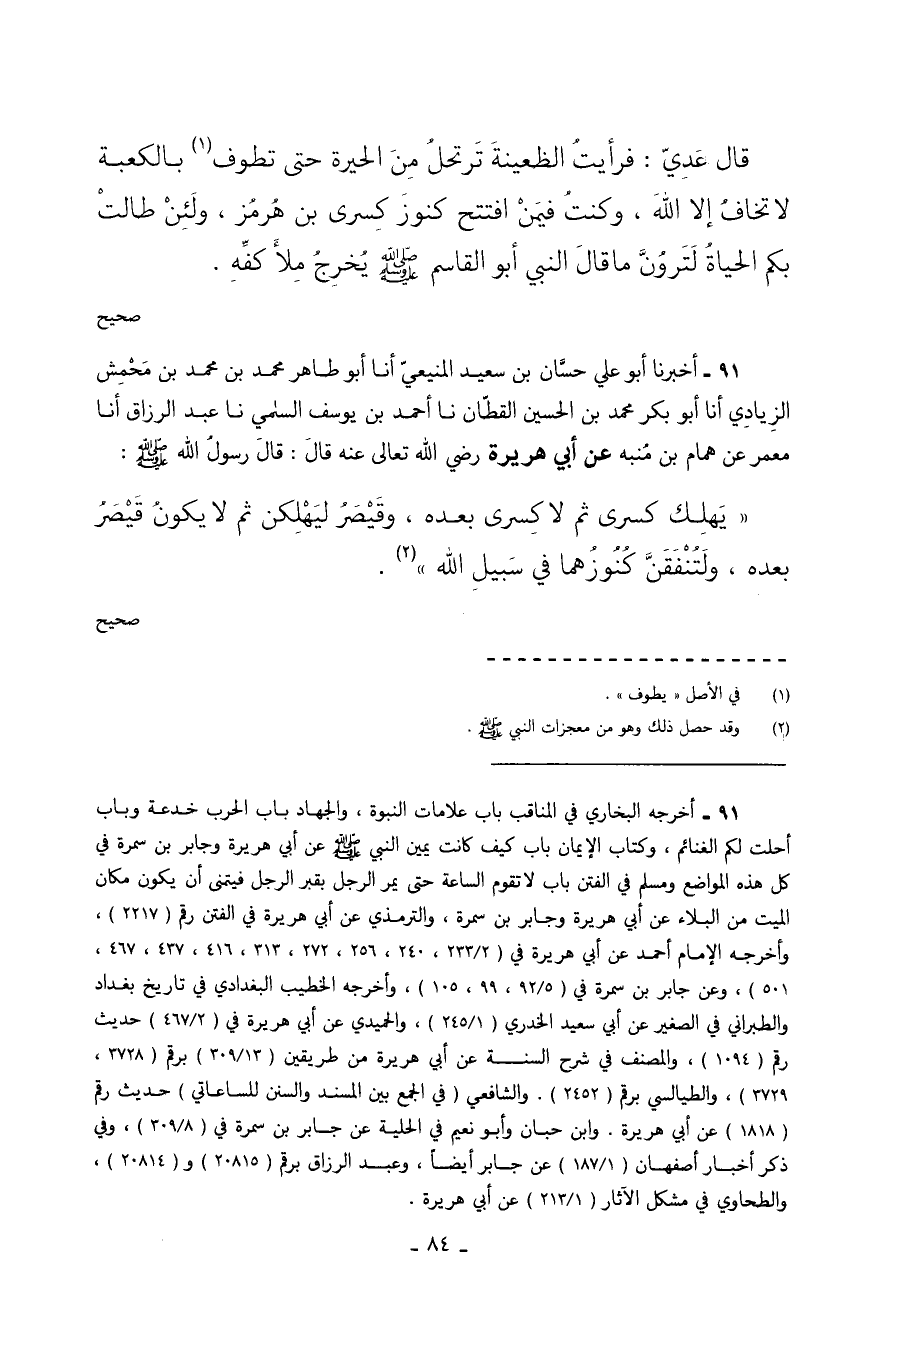 قال عَدِيّ : فرأيتُ الظعينةَ تَرتحلُ مِنَ الحيرة حتى تطوف(١) بالكعبة
لا تخافُ إلا اللهَ ، وكنتُ فيمَنْ افتتح كنوزَ كِسرى بن هُرمُز ، ولَئِنْ طالتْ
بكم الحياةُ لَتَروُنَّ ما قالَ النبي أبو القاسم ﷺ يُخرِجُ مِلأَ كفِّهِ .
صحيح
٩١ ـ أخبرنا أبو علي حسَّان بن سعيد المنيعيّ أنا أبو طاهر محمد بن محمد بن مَحْمِش
الزيادِي أنا أبو بكر محمد بن الحسين القطّان نا أحمد بن يوسف السلمي نا عبد الرزاق أنا
معمر عن همام بن مُنبه عن أبي هريرة رضي الله تعالى عنه قالَ : قالَ رسولُ الله ﷺ :
« يَهلِك كسرى ثم لا كِسرى بعده ، وقَيْصَرُ ليَهْلِكن ثم لا يكونُ قَيْصَرُ
بعده ، ولَتُنْفَقَنَّ كُنُوزُهما في سَبيلِ الله »(٢) .
صحيح
(١) في الأصل « يطوف » .
(٢) وقد حصل ذلك وهو من معجزات النبي ﷺ .
٩١ ـ أخرجه البخاري في المناقب باب علامات النبوة ، والجهاد باب الحرب خدعة وباب
أحلت لكم الغنائم ، وكتاب الإيمان باب كيف كانت يمين النبي ﷺ عن أبي هريرة وجابر بن سمرة في
كل هذه المواضع ومسلم في الفتن باب لا تقوم الساعة حتى يمر الرجل بقبر الرجل فيتمنى أن يكون مكان
الميت من البلاء عن أبي هريرة وجابر بن سمرة ، والترمذي عن أبي هريرة في الفتن رقم ( ٢٢١٧ ) ،
وأخرجه الإمام أحمد عن أبي هريرة في ( ٢٣٣/٢ ، ٢٤٠ ، ٢٥٦ ، ٢٧٢ ، ٣١٣ ، ٤١٦ ، ٤٣٧ ، ٤٦٧ ،
٥٠١ ) ، وعن جابر بن سمرة في ( ٩٢/٥ ، ٩٩ ، ١٠٥ ) ، وأخرجه الخطيب البغدادي في تاريخ بغداد
والطبراني في الصغير عن أبي سعيد الخدري ( ٢٤٥/١ ) ، والحميدي عن أبي هريرة في ( ٤٦٧/٢ ) حديث
رقم ( ١٠٩٤ ) ، والمصنف في شرح السنة عن أبي هريرة من طريقين ( ٣٠٩/١٣ ) برقم ( ٣٧٢٨ ،
٣٧٢٩ ) ، والطيالسي برقم ( ٢٤٥٢ ) . والشافعي ( في الجمع بين المسند والسنن للساعاتي ) حديث رقم
( ١٨١٨ ) عن أبي هريرة . وابن حبان وأبو نعيم في الحلية عن جابر بن سمرة في ( ٣٠٩/٨ ) ، وفي
ذكر أخبار أصفهان ( ١٨٧/١ ) عن جابر أيضاً ، وعبد الرزاق برقم ( ٢٠٨١٥ ) و ( ٢٠٨١٤ ) ،
والطحاوي في مشكل الآثار ( ٢١٣/١ ) عن أبي هريرة .
ـ ٨٤ ـ